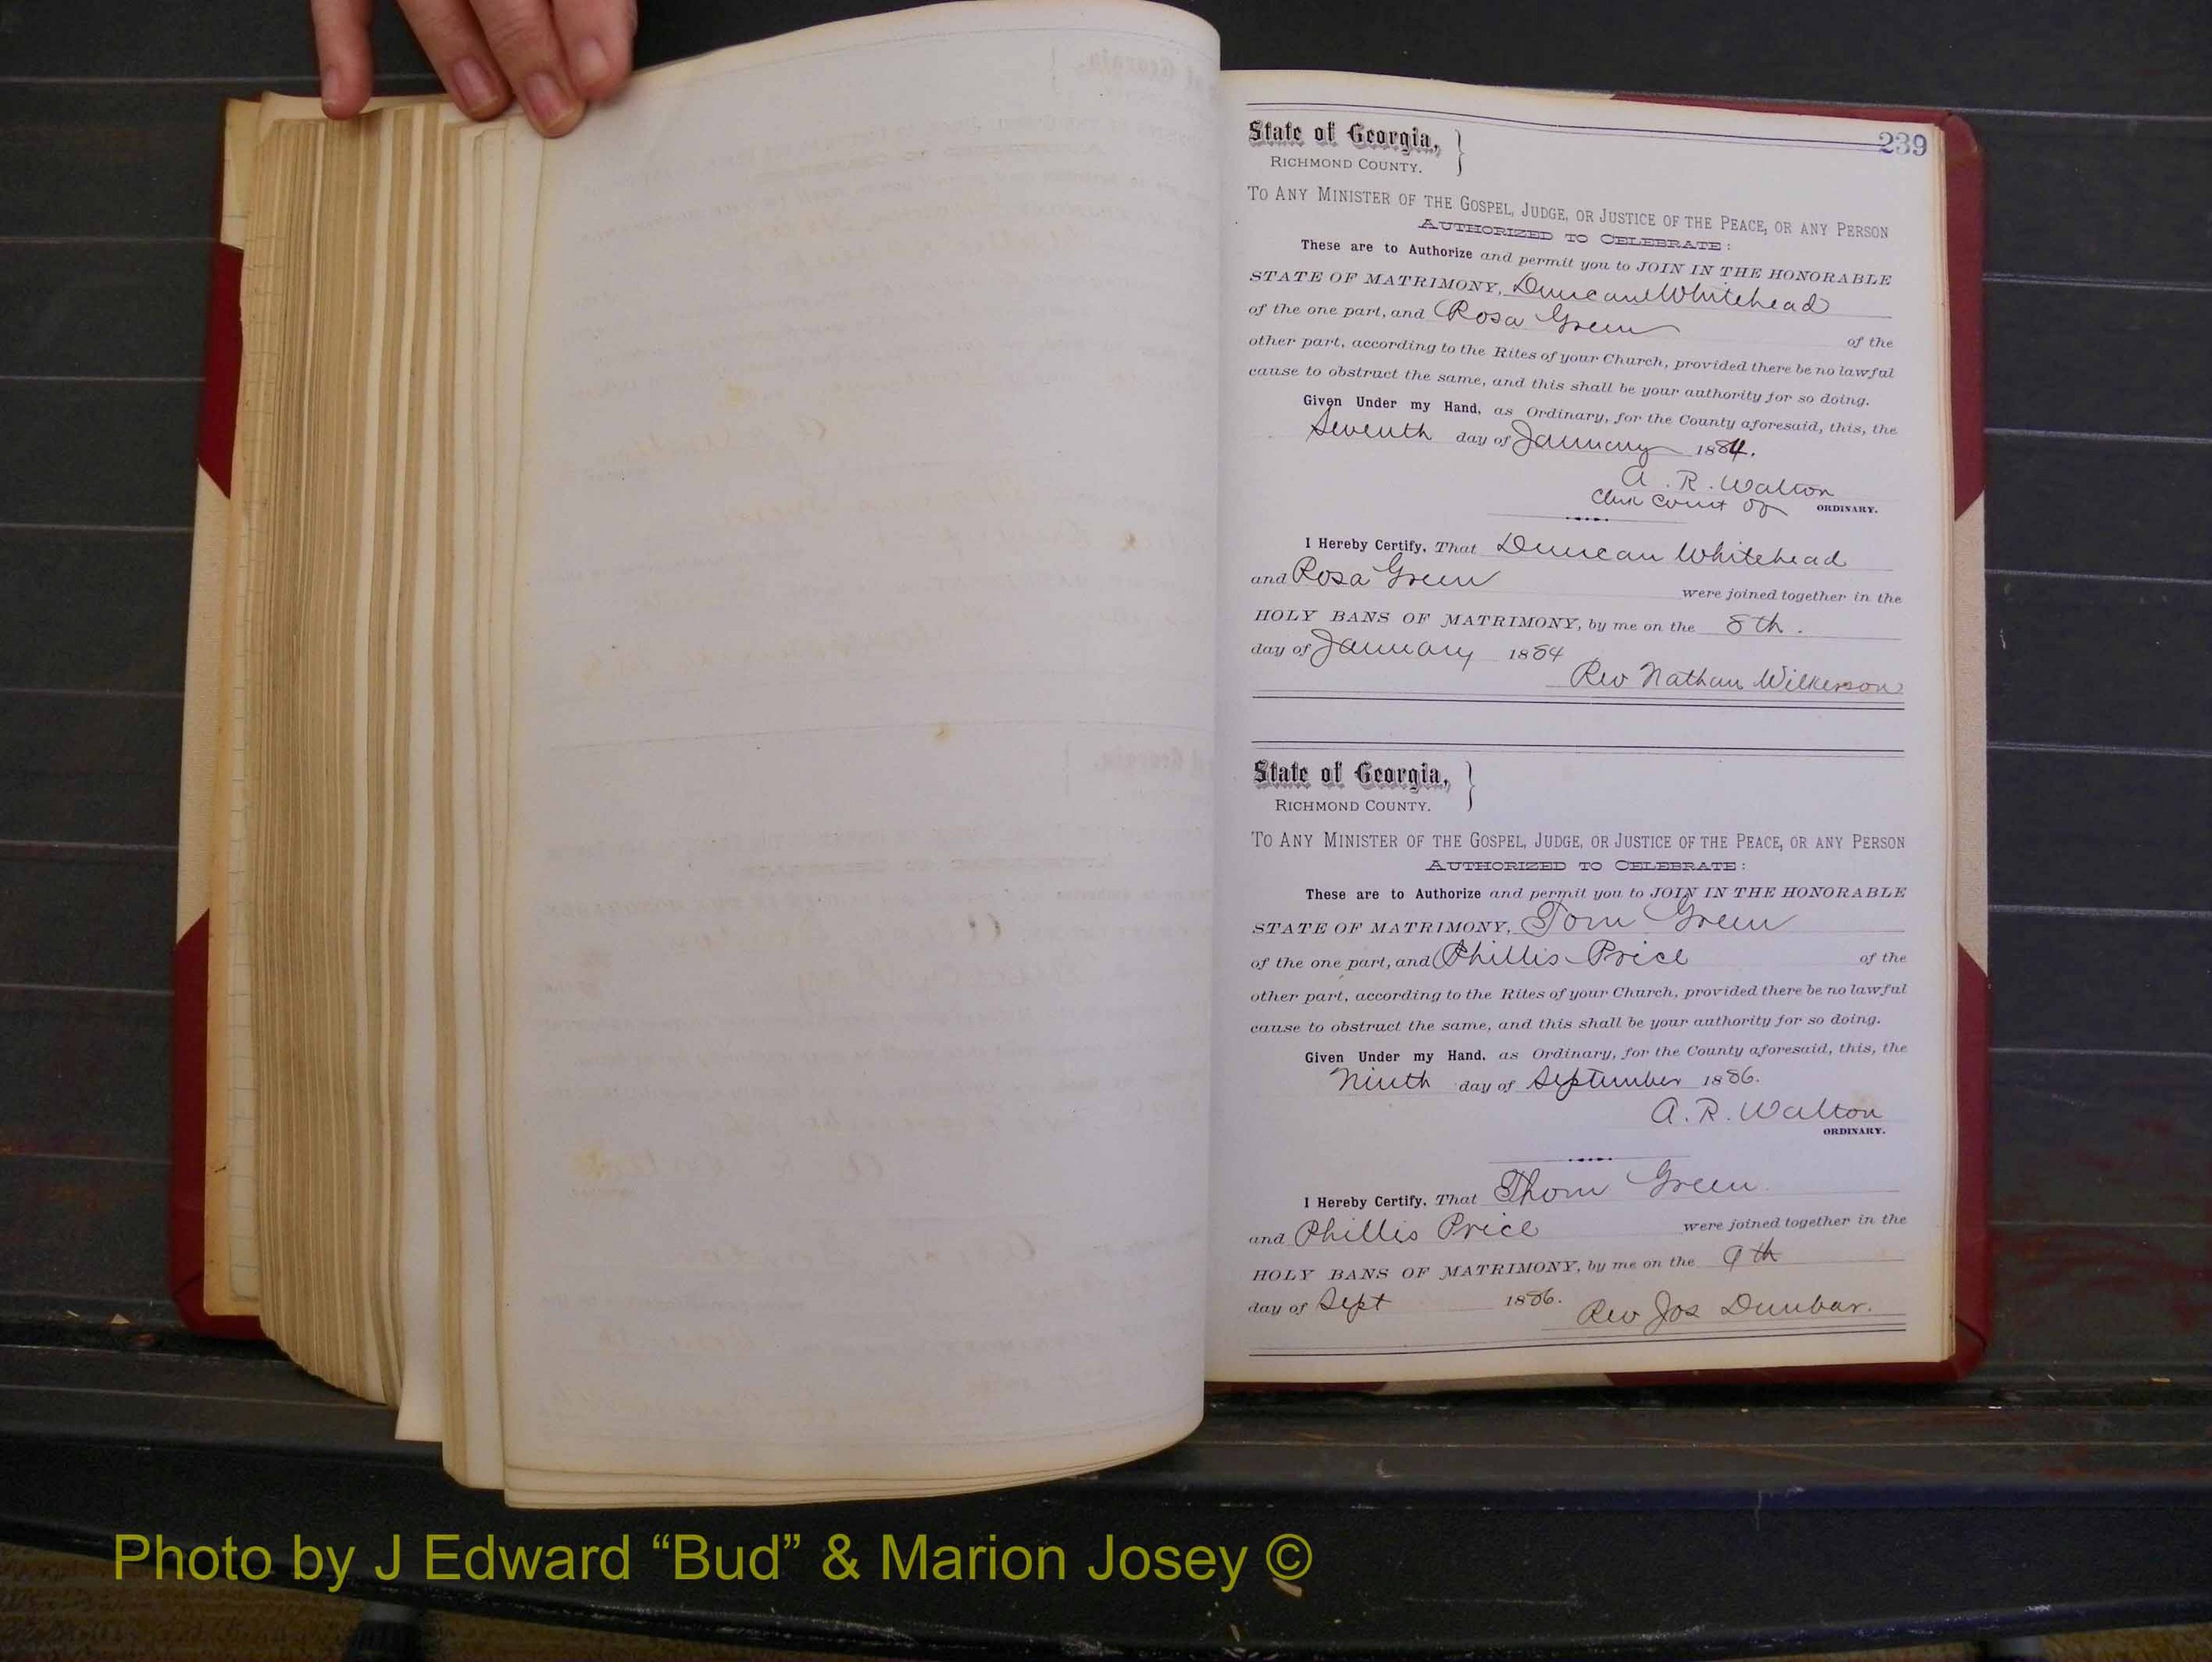 239
State of Georgia,
RICHMOND COUNTY.
TO ANY MINISTER OF THE GOSPEL, JUDGE, OR JUSTICE OF THE PEACE, OR ANY PERSON
AUTHORIZED TO CELEBRATE:
These are to Authorize and permit you to JOIN IN THE HONORABLE
STATE OF MATRIMONY, Duncan Whitehead
of the one part, and Rosa Green of the
other part, according to the Rites of your Church, provided there be no lawful
cause to obstruct the same, and this shall be your authority for so doing.
Given Under my Hand, as Ordinary, for the County aforesaid, this, the
Seventh day of January 1884.
A. R. Walton
Clerk Court Of ORDINARY.
I Hereby Certify, That Duncan Whitehead
and Rosa Green were joined together in the
HOLY BANS OF MATRIMONY, by me on the 8th.
day of January 1884
Rev Nathan Wilkerson
State of Georgia,
RICHMOND COUNTY.
TO ANY MINISTER OF THE GOSPEL, JUDGE, OR JUSTICE OF THE PEACE, OR ANY PERSON
AUTHORIZED TO CELEBRATE:
These are to Authorize and permit you to JOIN IN THE HONORABLE
STATE OF MATRIMONY, Tom Green
of the one part, and Phillis Price of the
other part, according to the Rites of your Church, provided there be no lawful
cause to obstruct the same, and this shall be your authority for so doing.
Given Under my Hand, as Ordinary, for the County aforesaid, this, the
Ninth day of September 1886.
A. R. Walton
ORDINARY.
I Hereby Certify, That Thom Green
and Phillis Price were joined together in the
HOLY BANS OF MATRIMONY, by me on the 9th
day of Sept 1886. Rev Jos Dunbar.
Photo by J Edward “Bud” & Marion Josey ©